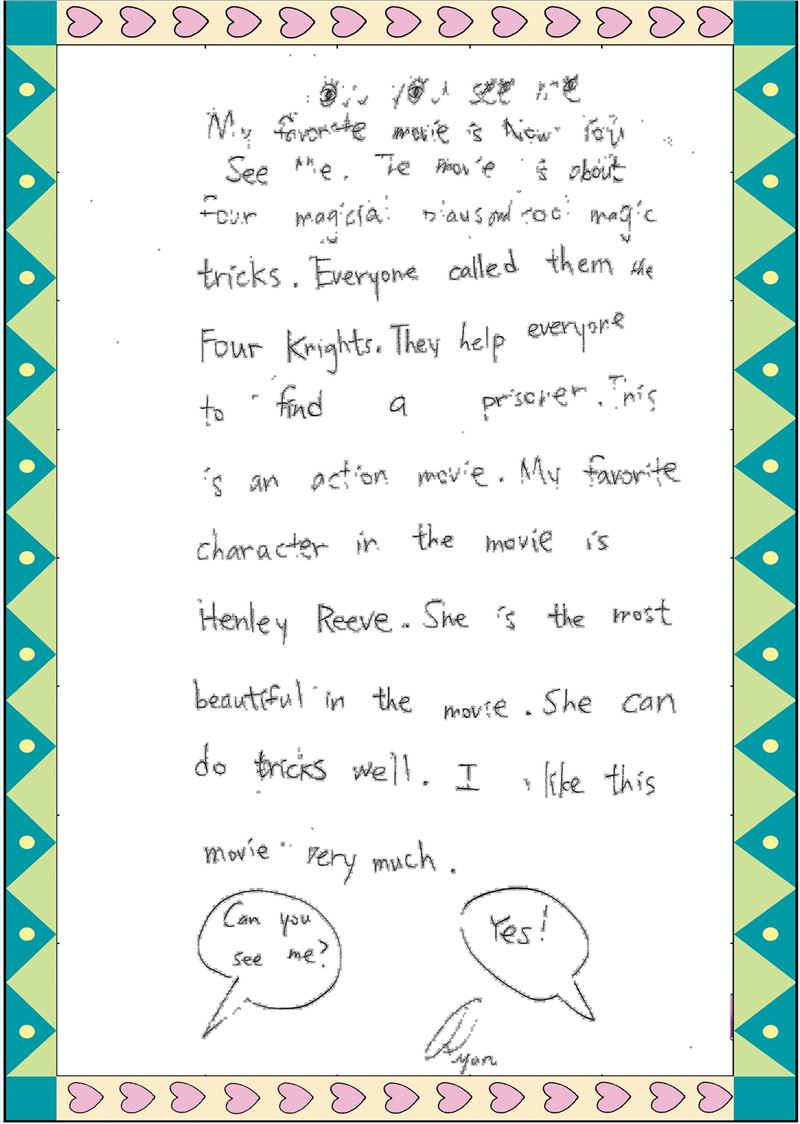 you see me
My favorite movie is Now You
See Me. The movie is about
four magic
tricks. Everyone called them the
Four Knights. They help everyone
to find a prisoner. This
is an action movie. My favorite
character in the movie is
Henley Reeve. She is the most
beautiful in the movie. She can
do tricks well. I like this
movie very much.
Can you
see me?
Yes!
Ryan